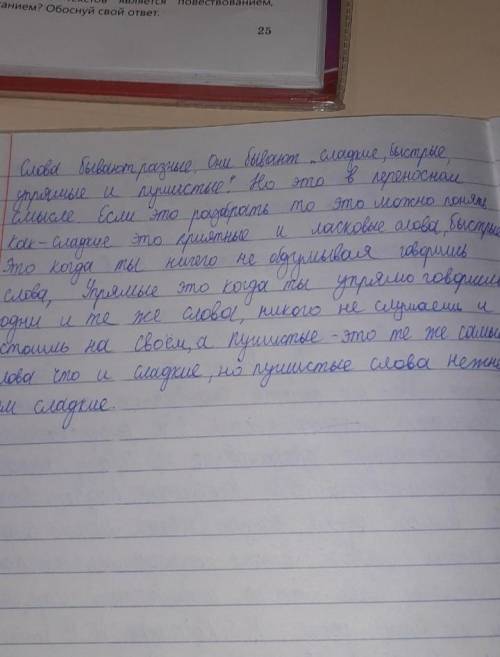 текстов является повествованием,
танием? Обоснуй свой ответ.
25
Слова бывают разные. Они бывают „сладкие, быстрые,
упрямые и пушистые! Но это в переносном
смысле Если это разобрать то это можно понять
как - сладкие это приятные и ласковые слова, быстрые
Это когда ты ничего не обдумывая говоришь
слова, Упрямые это когда ты упрямо говоришь
одни и те же слова, никого не слушаешь и
стоишь на своём, а пушистые - это те же самы
лова что и сладкие, но пушистые слова нежне
ем сладкие.